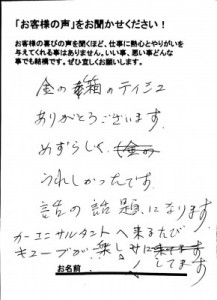 「お客様の声」をお聞かせください！
お客様の喜びの声を聞くほど、仕事に熱心とやりがいを
与えてくれる事はありません。いい事、悪い事どんな
事でも結構です。ぜひ宜しくお願いします。
金の 箱のティシュ
ありがとうございます。
めずらしく、
うれしかったです。
話の話題になります。
カーエコンサルタントへ来るたび
キューブが楽しみに
してます
お名前